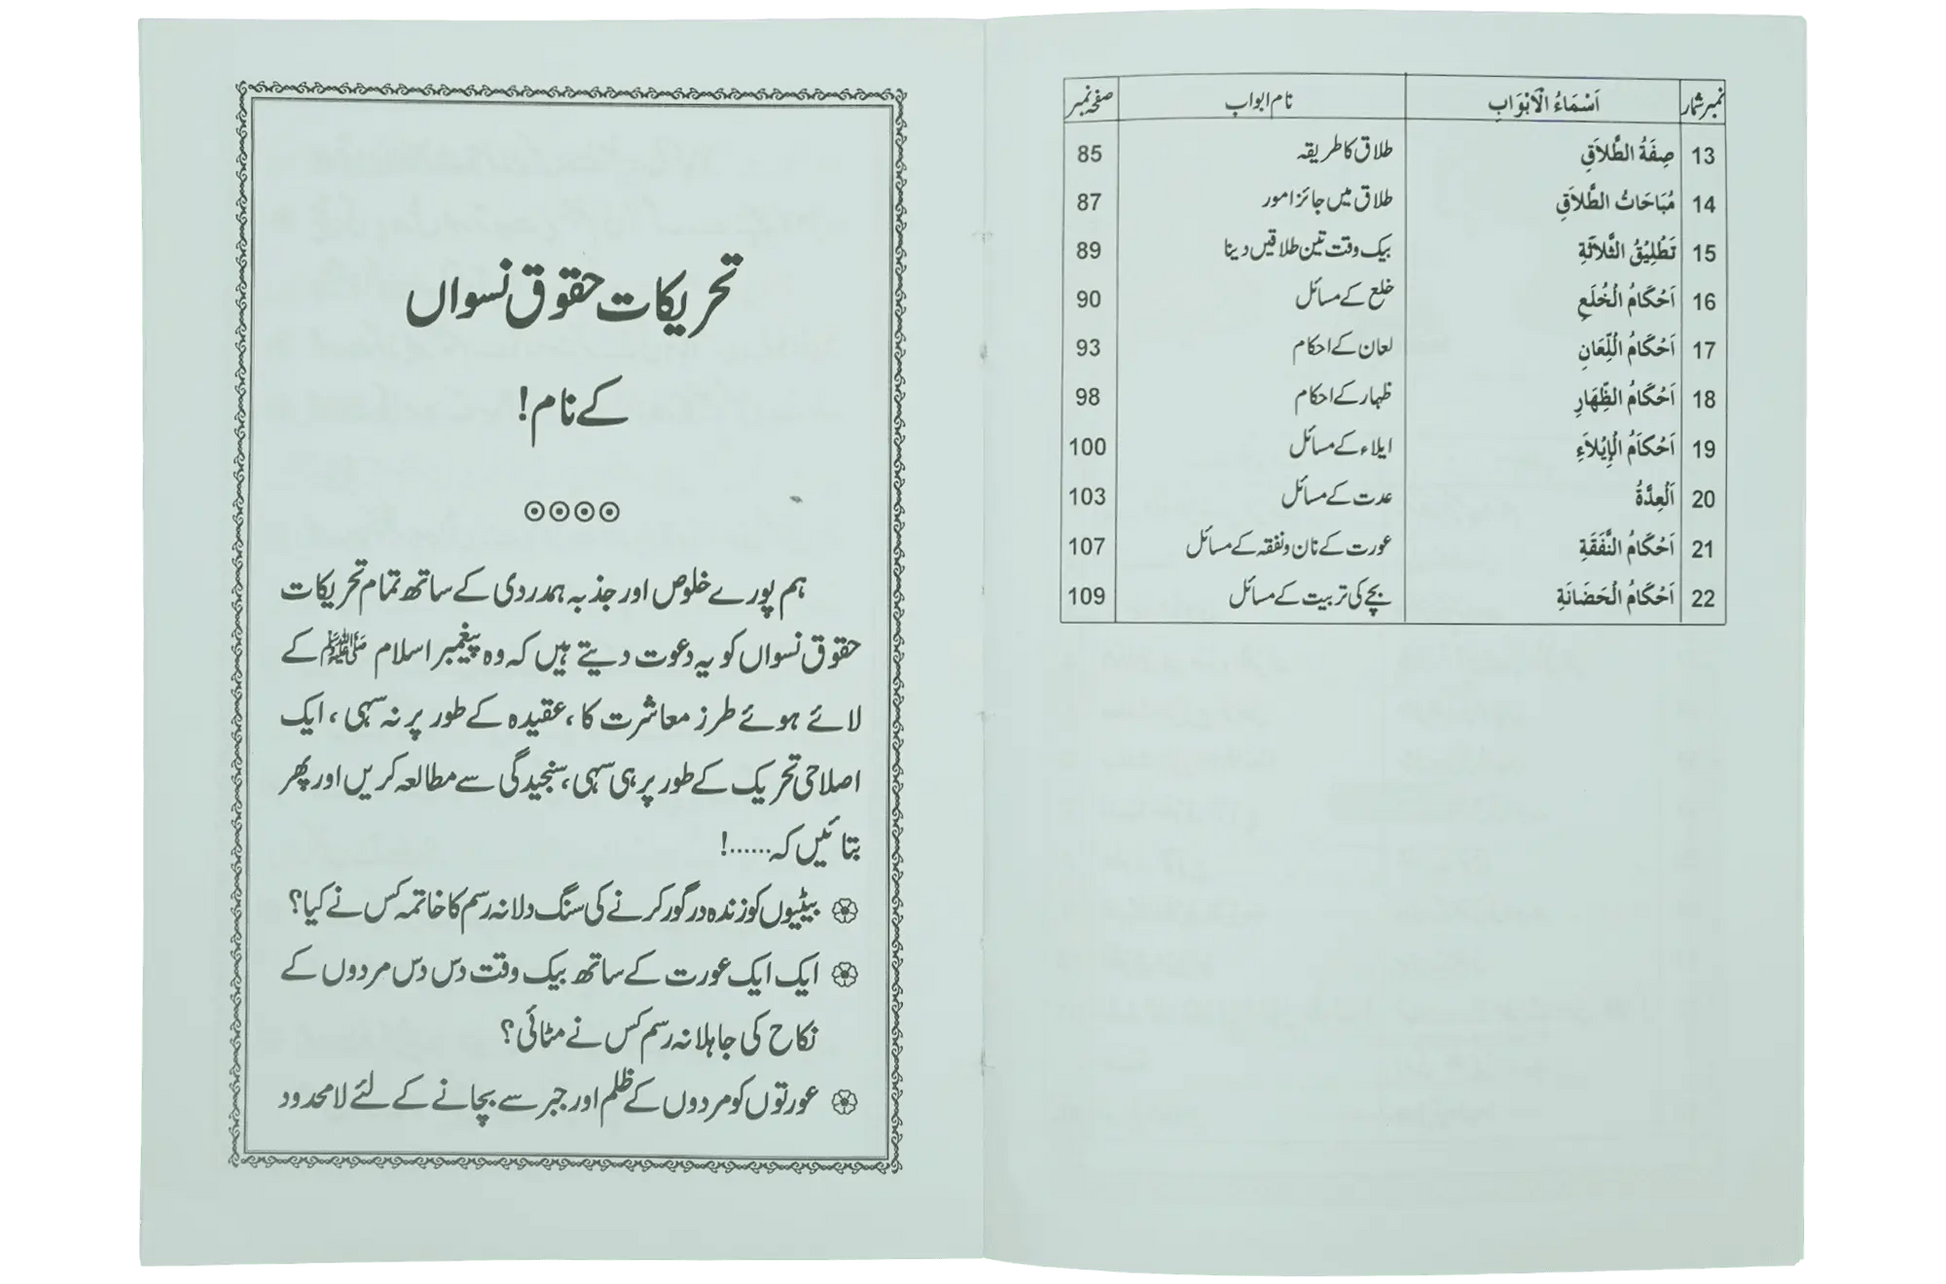 نمبر شمار اَسْمَاءُ الْاَبْوَابِ نام ابواب صفحہ نمبر
13 صِفَةُ الطَّلاَقِ طلاق کا طریقہ 85
14 مُبَاحَاتُ الطَّلاَقِ طلاق میں جائز امور 87
15 تَطْلِيْقُ الثَّلاَثَةِ بیک وقت تین طلاقیں دینا 89
16 اَحْكَامُ الْخُلَعِ خلع کے مسائل 90
17 اَحْكَامُ اللِّعَانِ لعان کے احکام 93
18 اَحْكَامُ الظِّهَارِ ظہار کے احکام 98
19 اَحْكَامُ الْإِيْلاَءِ ایلاء کے مسائل 100
20 اَلْعِدَّةُ عدت کے مسائل 103
21 اَحْكَامُ النَّفَقَةِ عورت کے نان و نفقہ کے مسائل 107
22 اَحْكَامُ الْحَضَانَةِ بچے کی تربیت کے مسائل 109
تحریکات حقوق نسواں
کے نام!
ہم پورے خلوص اور جذبہ ہمدردی کے ساتھ تمام تحریکات
حقوق نسواں کو یہ دعوت دیتے ہیں کہ وہ پیغمبر اسلام ﷺ کے
لائے ہوئے طرز معاشرت کا، عقیدہ کے طور پر نہ سہی، ایک
اصلاحی تحریک کے طور پر ہی سہی، سنجیدگی سے مطالعہ کریں اور پھر
بتائیں کہ......!
بیٹیوں کو زندہ درگور کرنے کی سنگ دلانہ رسم کا خاتمہ کس نے کیا؟
ایک ایک عورت کے ساتھ بیک وقت دس دس مردوں کے
نکاح کی جاہلانہ رسم کس نے مٹائی؟
عورتوں کو مردوں کے ظلم اور جبر سے بچانے کے لئے لامحدود